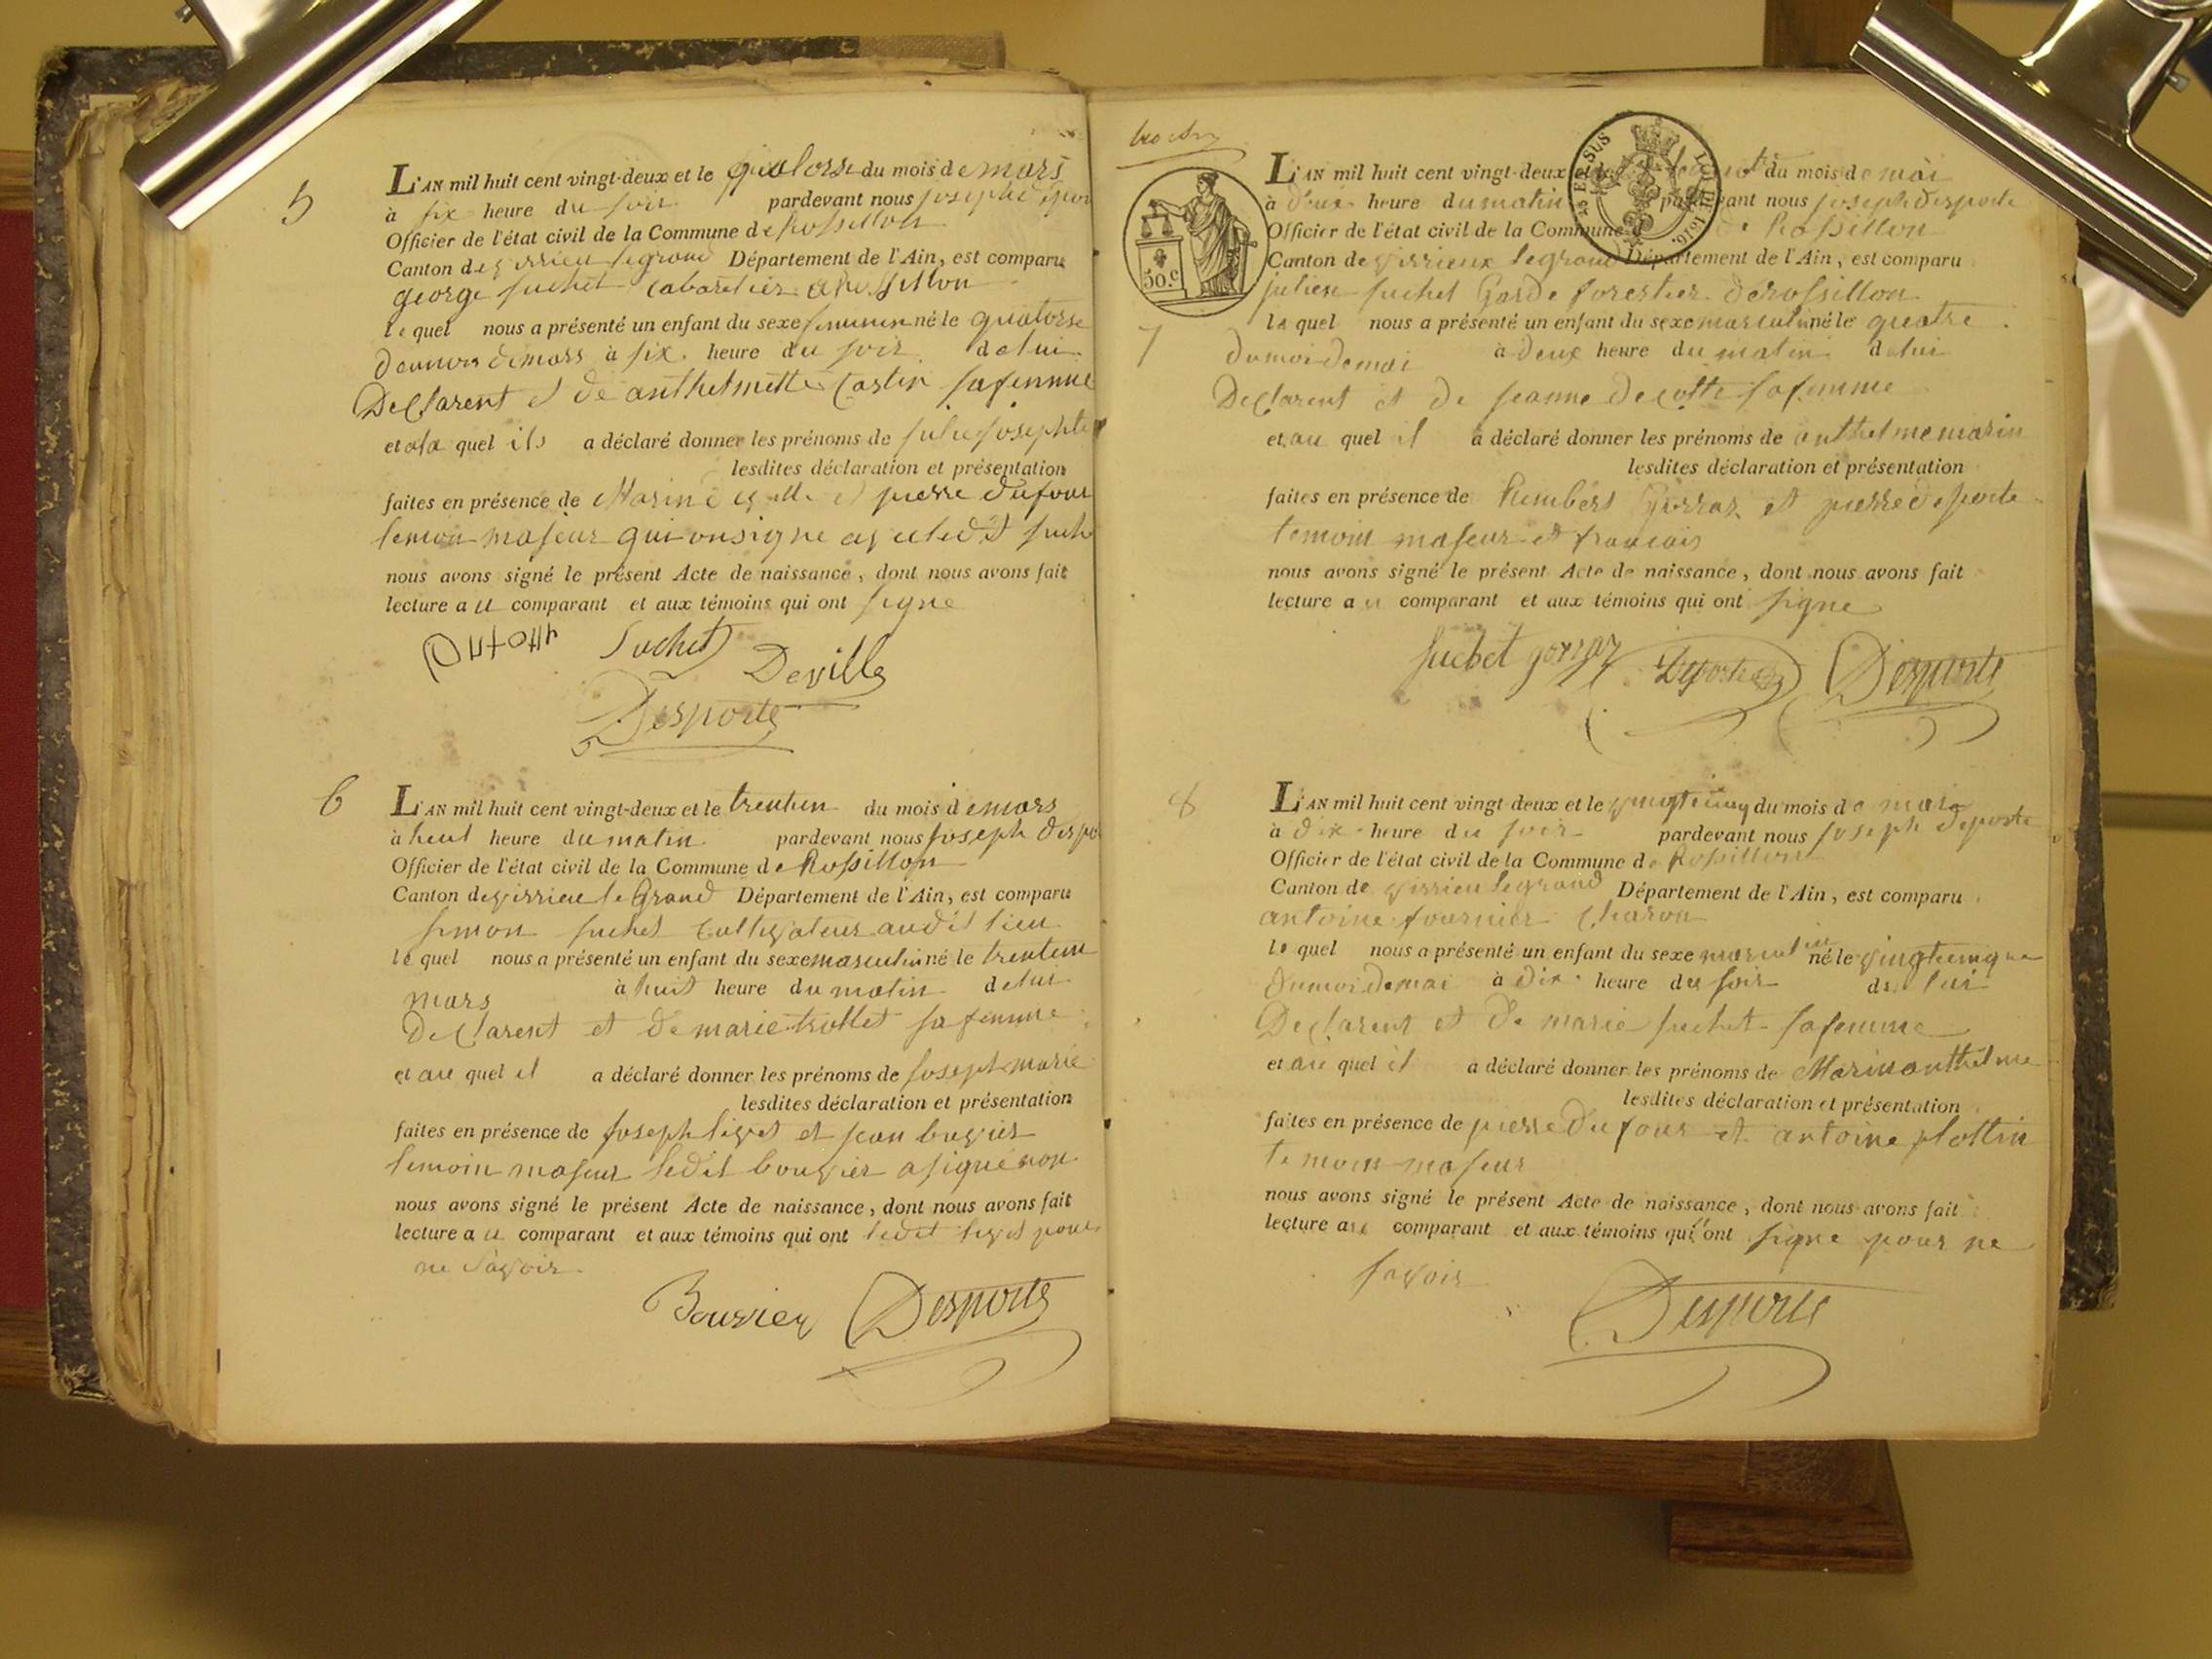 5
L'AN mil huit cent vingt-deux et le quatorse du mois de mars
à six heure du soir pardevant nous joseph depor
Officier de l'état civil de la Commune de Rossillon
Canton de virrieu legrand Département de l'Ain, est comparu
george suchet cabaretier a rossillon
le quel nous a présenté un enfant du sexe feminin né le quatorse
du mois de mars à six heure du soir de lui
Declarent et de anthelmette Castin sa femme
et a la quel ils a déclaré donner les prénoms de julie josephte
lesdites déclaration et présentation
faites en présence de et pierre dufour
temoin majeur qui onsigne avecledit suche
nous avons signé le présent Acte de naissance, dont nous avons fait
lecture au comparant et aux témoins qui ont signe
Suchet Deville
Desporte
6
L'AN mil huit cent vingt-deux et le trentun du mois de mars
à heut heure du matin pardevant nous joseph despo
Officier de l'état civil de la Commune de Rossillon
Canton de virrieu le Grand Département de l'Ain, est comparu
simon suchet cultivateur audit lieu
le quel nous a présenté un enfant du sexe masculin né le trentun
mars à huit heure du matin de lui
Declarent et de marie trollet sa femme
et au quel il a déclaré donner les prénoms de joseph marie
lesdites déclaration et présentation
faites en présence de joseph livet et jean buvier
temoin majeur ledit bouvier a signé non
nous avons signé le présent Acte de naissance, dont nous avons fait
lecture au comparant et aux témoins qui ont ledit livet pour
ne savoir
Bouvier Desporte
50.c
25 EN SUS
LOI DE 1816.
7
L'AN mil huit cent vingt-deux du mois de mai
à deux heure du matin pardevant nous joseph desporte
Officier de l'état civil de la Commune de Rossillon
Canton de virrieux legrand Département de l'Ain, est comparu
julien suchet Garde forestier de rossillon
le quel nous a présenté un enfant du sexe masculin né le quatre
du moi de mai à deux heure du matin de lui
Declarent et de jeanne decotte sa femme
et au quel il a déclaré donner les prénoms de anthelme marin
lesdites déclaration et présentation
faites en présence de humbert gorraz et pierre desporte
temoin majeur et francais
nous avons signé le présent Acte de naissance, dont nous avons fait
lecture au comparant et aux témoins qui ont signe
suchet gorraz Desporte Desporte
8
L'AN mil huit cent vingt-deux et le vingt cinq du mois de mai
à dix heure du soir pardevant nous joseph deporte
Officier de l'état civil de la Commune de Rossillon
Canton de virrieu legrand Département de l'Ain, est comparu
antoine fournier charon
le quel nous a présenté un enfant du sexe masculin né le vingtcinq
du moi de mai à dix heure du soir de lui
Declarent et de marie suchet sa femme
et au quel il a déclaré donner les prénoms de Marin anthelme
lesdites déclaration et présentation
faites en présence de pierre dufour et antoine plottin
temoin majeur
nous avons signé le présent Acte de naissance, dont nous avons fait
lecture au comparant et aux témoins qui ont signe pour ne
savoir
Desporte